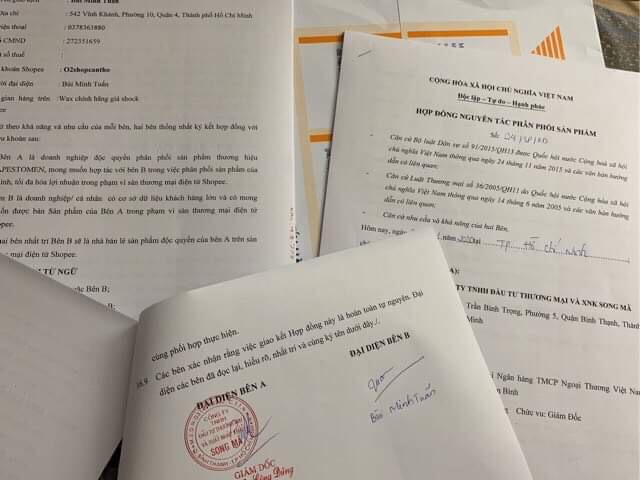 Bùi Minh Tuấn
: 542 Vĩnh Khánh, Phường 10, Quận 4, Thành phố Hồ Chí Minh
: 0378363880
CMND : 272351659
khoản Shopee : O2shopcantho
đại diện : Bùi Minh Tuấn
gian hàng trên : Wax chính hãng giá shock
theo khả năng và nhu cầu của mỗi bên, hai bên thống nhất ký kết hợp đồng với
khoản sau:
Bên A là doanh nghiệp độc quyền phân phối sản phẩm thương hiệu
APESTOMEN, mong muốn hợp tác với bên B trong việc phân phối sản phẩm của
mình, tối đa hóa lợi nhuận trong phạm vi sàn thương mại điện tử Shopee.
Bên B là doanh nghiệp/ cá nhân có cơ sở dữ liệu khách hàng lớn và có mong
được bán Sản phẩm của Bên A trong phạm vi sàn thương mại điện tử
Shopee.
hai bên nhất trí Bên B sẽ là nhà bán lẻ sản phẩm độc quyền của bên A trên sàn
mại điện tử Shopee.
TỪ NGỮ
Bên B;
CỘNG HÒA XÃ HỘI CHỦ NGHĨA VIỆT NAM
Độc lập – Tự do – Hạnh phúc
HỢP ĐỒNG NGUYÊN TẮC PHÂN PHỐI SẢN PHẨM
Số:
- Căn cứ Bộ luật Dân sự số 91/2015/QH13 được Quốc hội nước Cộng hoà xã hội
chủ nghĩa Việt Nam thông qua ngày 24 tháng 11 năm 2015 và các văn bản hướng
dẫn có liên quan;
- Căn cứ Luật Thương mại số 36/2005/QH11 do Quốc hội nước Cộng hòa xã hội
chủ nghĩa Việt Nam thông qua ngày 14 tháng 6 năm 2005 và các văn bản hướng
dẫn có liên quan;
- Căn cứ nhu cầu và khả năng của hai Bên.
Hôm nay, ngày TP Hồ chí Minh
A):
TY TNHH ĐẦU TƯ THƯƠNG MẠI VÀ XNK SONG MÃ
Trần Bình Trọng, Phường 5, Quận Bình Thạnh, Thành
Minh
Ngân hàng TMCP Ngoại Thương Việt Nam
Bình
Chức vụ: Giám Đốc
cùng phối hợp thực hiện.
Các bên xác nhận rằng việc giao kết Hợp đồng này là hoàn toàn tự nguyện. Đại
diện các bên đã đọc lại, hiểu rõ, nhất trí và cùng ký tên dưới đây./.
ĐẠI DIỆN BÊN A
ĐẠI DIỆN BÊN B
CÔNG TY
TNHH
SONG MÃ
GIÁM ĐỐC
Bùi Minh Tuấn